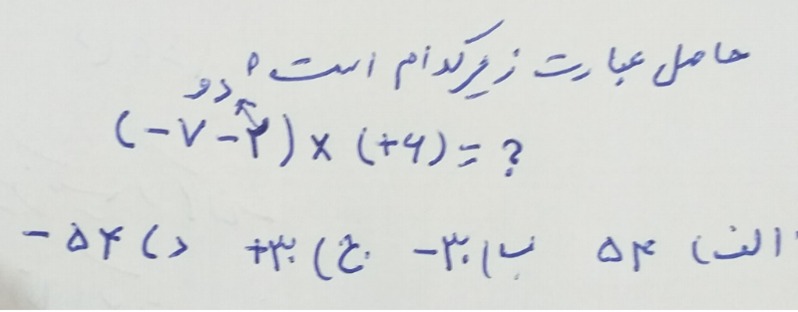 حاصل عبارت زیر کدام است؟
دو
(-۷-۲) × (+۶) = ?
الف) ۵۴ ب) -۳۰ ج) +۳۰ د) -۵۴